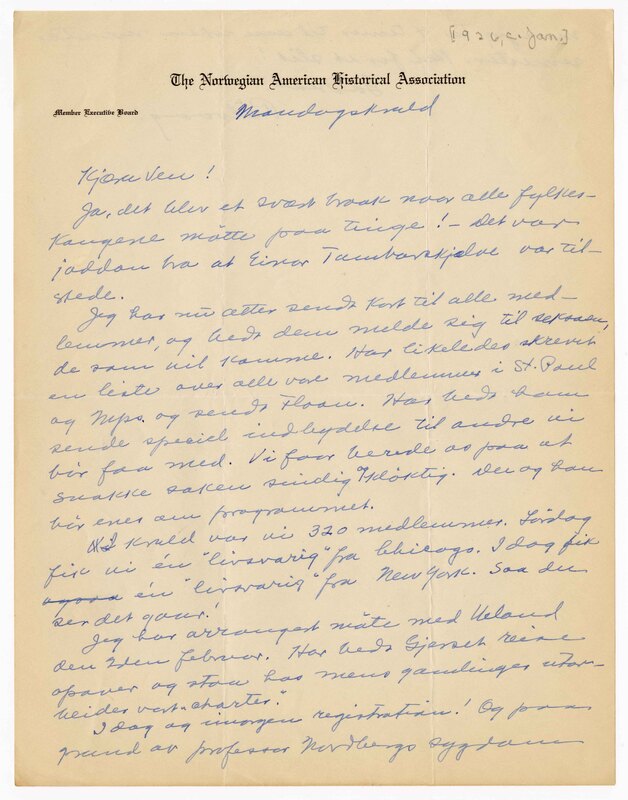 [1926, c. Jan.]
The Norwegian American Historical Association
Member Executive Board
Mandagskveld
Kjære Ven!
Ja, det blev et svært braak naar alle fylkes-
kongene møtte paa tinge! – Det var
jaddan bra at Einar Tambarskjælve var til-
stede.
Jeg har nu atter sendt kort til alle med-
lemmer, og bedt dem melde sig til
de som vil komme. Har likeledes skrevet
en liste over alle vore medlemmer i St. Paul
og Mps. og sendt Floan. Har bedt ham
sende speciel indbydelse til andre vi
bør faa med. Vi faar berede os paa at
snakke saken sindig & kløktig. Du og han
bør enes om programmet.
I kveld var vi 320 medlemmer. Lördag
fik vi én "livsvarig" fra Chicago. I dag fik
én "livsvarig" fra New York. Saa du
ser det gaar!
Jeg har arrangert møte med Ueland
den 2den februar. Har bedt Gjerset reise
opover og staa hos mens gamlingen utar-
beider vort "charter."
I dag og imorgen registration! Og paa
grund av professor Nordbergs sygdom